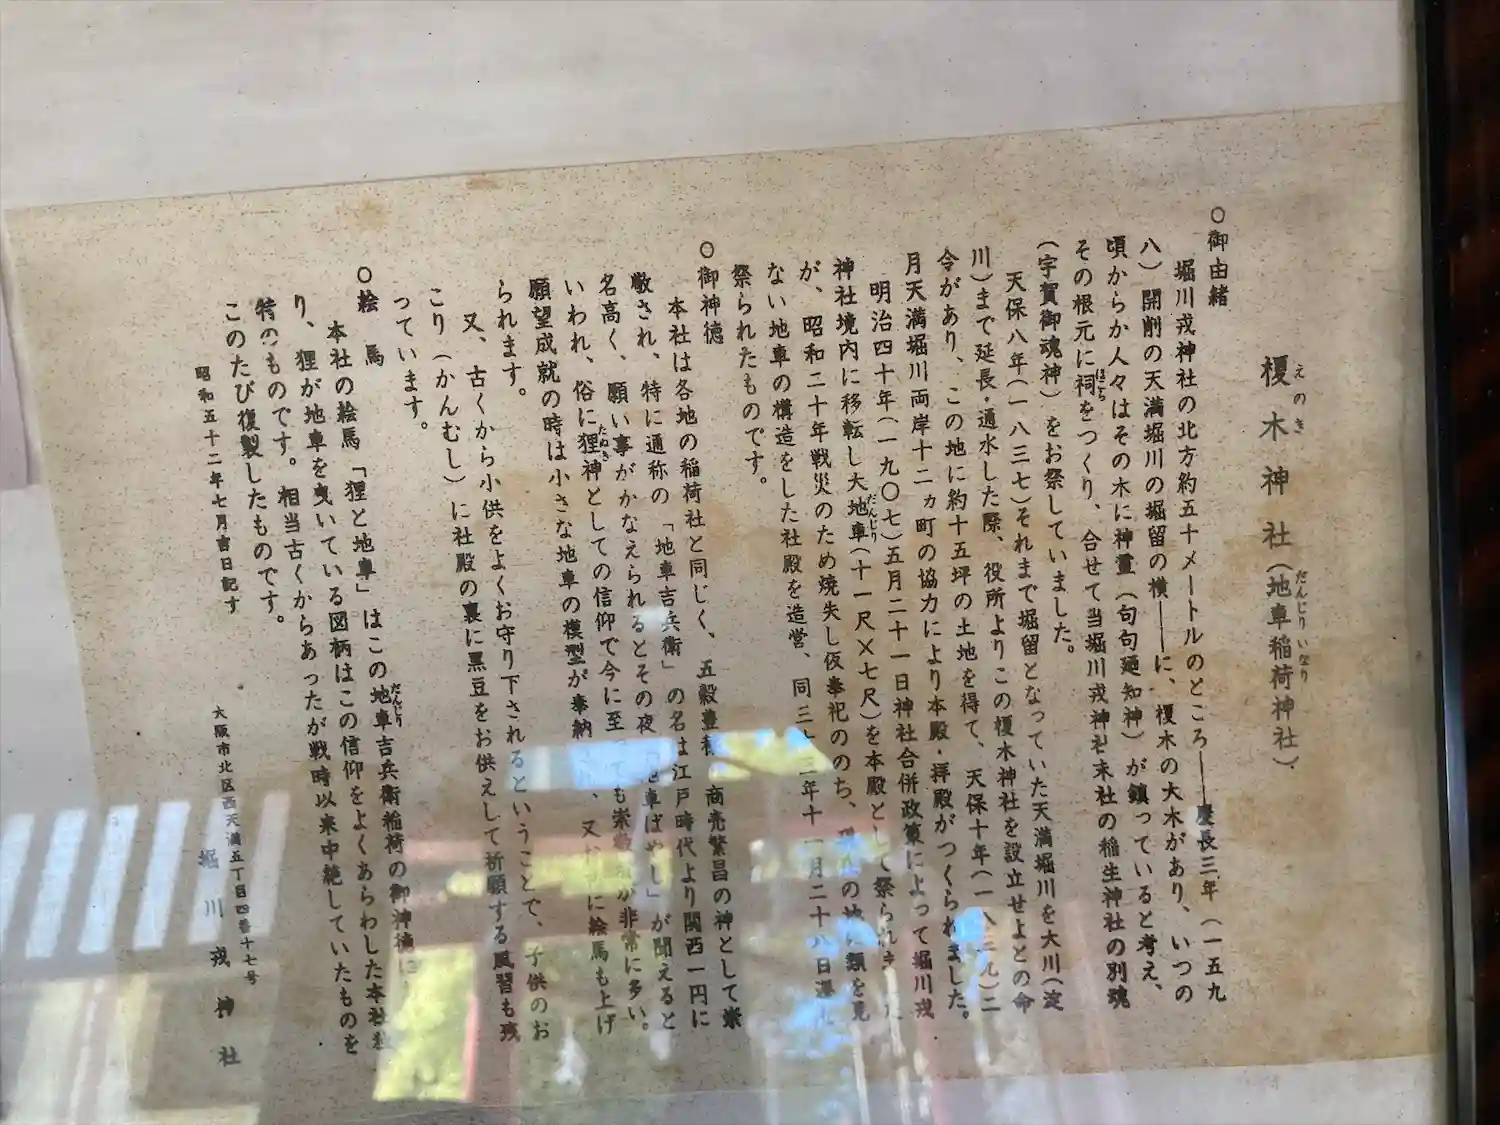 榎木神社(地車稲荷神社)
えのき
だんじりいなり
○御由緒
堀川戎神社の北方約五十メートルのところ――慶長三年(一五九
八)開削の天満堀川の堀留の横――に、榎木の大木があり、いつの
頃からか人々はその木に神霊(句句廼知神)が鎮っていると考え、
その根元に祠をつくり、合せて当堀川戎神社末社の稲生神社の別魂
ほこら
(宇賀御魂神)をお祭していました。
天保八年(一八三七)それまで堀留となっていた天満堀川を大川(淀
川)まで延長・通水した際、役所よりこの榎木神社を設立せよとの命
令があり、この地に約十五坪の土地を得て、天保十年(一八三九)二
月天満堀川両岸十二ヵ町の協力により本殿・拝殿がつくられました。
明治四十年(一九〇七)五月二十一日神社合併政策によって堀川戎
神社境内に移転し大地車(十一尺×七尺)を本殿として祭られました
だんじり
が、昭和二十年戦災のため焼失し仮奉祀ののち、現在の地に類を見
ない地車の構造をした社殿を造営、同三十三年十一月二十八日還
祭られたものです。
○御神徳
本社は各地の稲荷社と同じく、五穀豊穣、商売繁昌の神として崇
敬され、特に通称の「地車吉兵衛」の名は江戸時代より関西一円に
名高く、願い事がかなえられるとその夜「地車ばやし」が聞えると
いわれ、俗に狸神としての信仰で今に至っても崇敬が非常に多い。
たぬき
願望成就の時は小さな地車の模型が奉納され、又に絵馬も上げ
られます。
又、古くから小供をよくお守り下されるということで、子供のお
こり(かんむし)に社殿の裏に黒豆をお供えして祈願する風習も残
っています。
○絵馬
本社の絵馬「狸と地車」はこの地車吉兵衛稲荷の御神徳に
だんじり
り、狸が地車を曳いている図柄はこの信仰をよくあらわした本社独
特のものです。相当古くからあったが戦時以来中絶していたものを
このたび復製したものです。
昭和五十二年七月吉日記す
大阪市北区西天満五丁目四番十七号
堀川戎神社